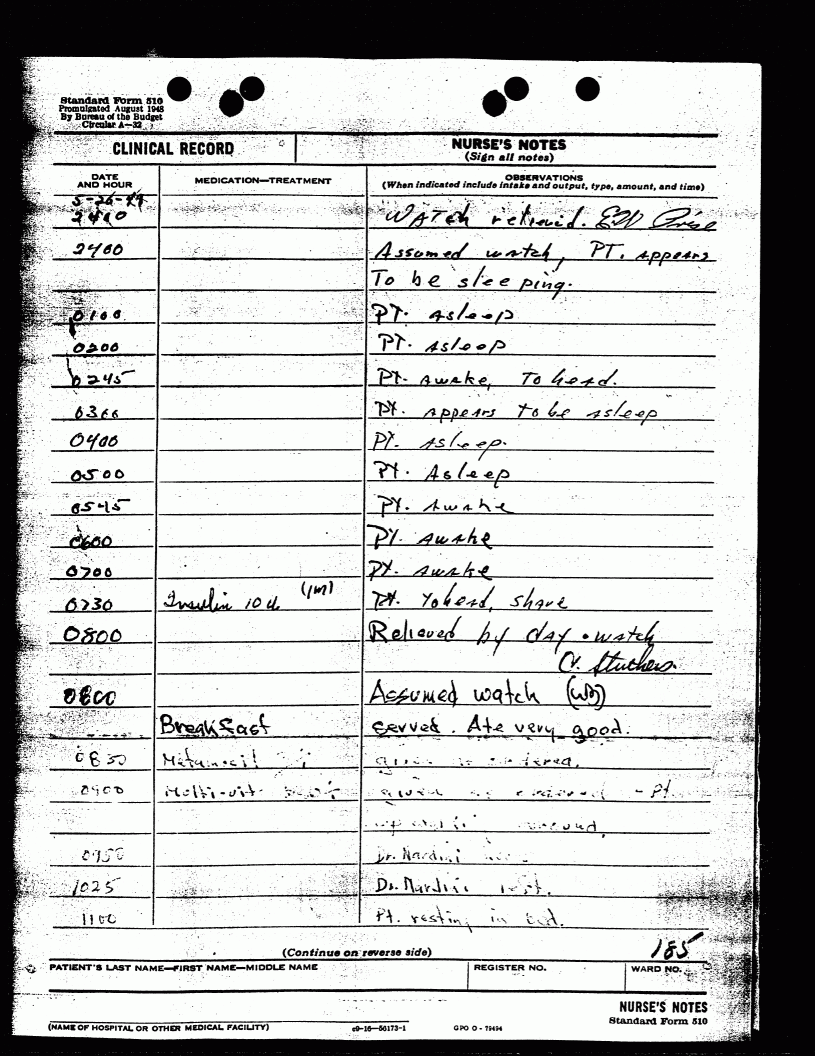 Standard Form 510
Promulgated August 1948
By Bureau of the Budget
Circular A—32
CLINICAL RECORD
NURSE'S NOTES
(Sign all notes)
DATE AND HOUR
MEDICATION—TREATMENT
OBSERVATIONS
(When indicated include intake and output, type, amount, and time)
5-26-49
2400 Watch relieved. EW
2400 Assumed watch, PT. appears
To be sleeping.
0100 PT. Asleep
0200 PT. Asleep
0245 Pt. Awake, To head.
0300 Pt. appears to be asleep
0400 PT. Asleep.
0500 PT. Asleep
0545 PT. Awake
0600 PT. Awake
0700 PT. Awake
0730 Insulin 10 u (IM) Pt. To head, shave
0800 Relieved by day watch
0800 Assumed watch (WB)
Breakfast served. Ate very good.
0830 Metamucil given as ordered.
0900 Multi-vit given as ordered - Pt.
around.
0950 Dr. Nardini
1025 Dr. Nardini left.
1100 Pt. resting in bed.
(Continue on reverse side)
185
PATIENT'S LAST NAME—FIRST NAME—MIDDLE NAME
REGISTER NO.
WARD NO.
NURSE'S NOTES
Standard Form 510
(NAME OF HOSPITAL OR OTHER MEDICAL FACILITY)
c9-16—56173-1
GPO O - 79494